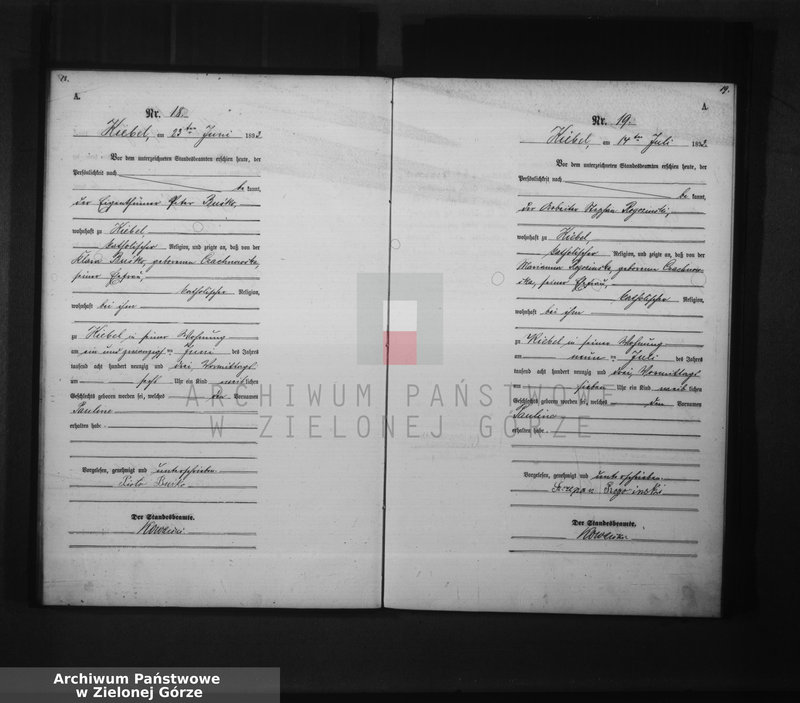 18.
A.
Nr. 18.
Kiebel, am 23ten Juni 1893.
Vor dem unterzeichneten Standesbeamten erschien heute, der
Persönlichkeit nach
be kannt,
der Eigenthümer Peter
wohnhaft zu Kiebel
katholischer Religion, und zeigte an, daß von der
Klara geborenen
seiner Ehefrau,
katholischer Religion,
wohnhaft bei ihm
zu Kiebel in seiner Wohnung
am ein und zwanzigst ten Juni des Jahres
tausend acht hundert neunzig und drei, Vormittags
um sechs Uhr ein Kind weib lichen
Geschlechts geboren worden sei, welches den Vornamen
Pauline
erhalten habe.
Vorgelesen, genehmigt und unterschrieben.
Der Standesbeamte.
19.
A.
Nr. 19.
Kiebel, am 14ten Juli 1893.
Vor dem unterzeichneten Standesbeamten erschien heute, der
Persönlichkeit nach
be kannt,
der Arbeiter Stephan
wohnhaft zu Kiebel
katholischer Religion, und zeigte an, daß von der
Marianna geborenen
seiner Ehefrau,
katholischer Religion,
wohnhaft bei ihm
zu Kiebel in seiner Wohnung
am neun ten Juli des Jahres
tausend acht hundert neunzig und drei, Vormittags
sieben Uhr ein Kind weib lichen
Geschlechts geboren worden sei, welches den Vornamen
Paulina
erhalten habe.
Vorgelesen, genehmigt und unterschrieben.
Der Standesbeamte.
ARCHIWUM PAŃSTWOWE
W ZIELONEJ GÓRZE
Archiwum Państwowe
w Zielonej Górze